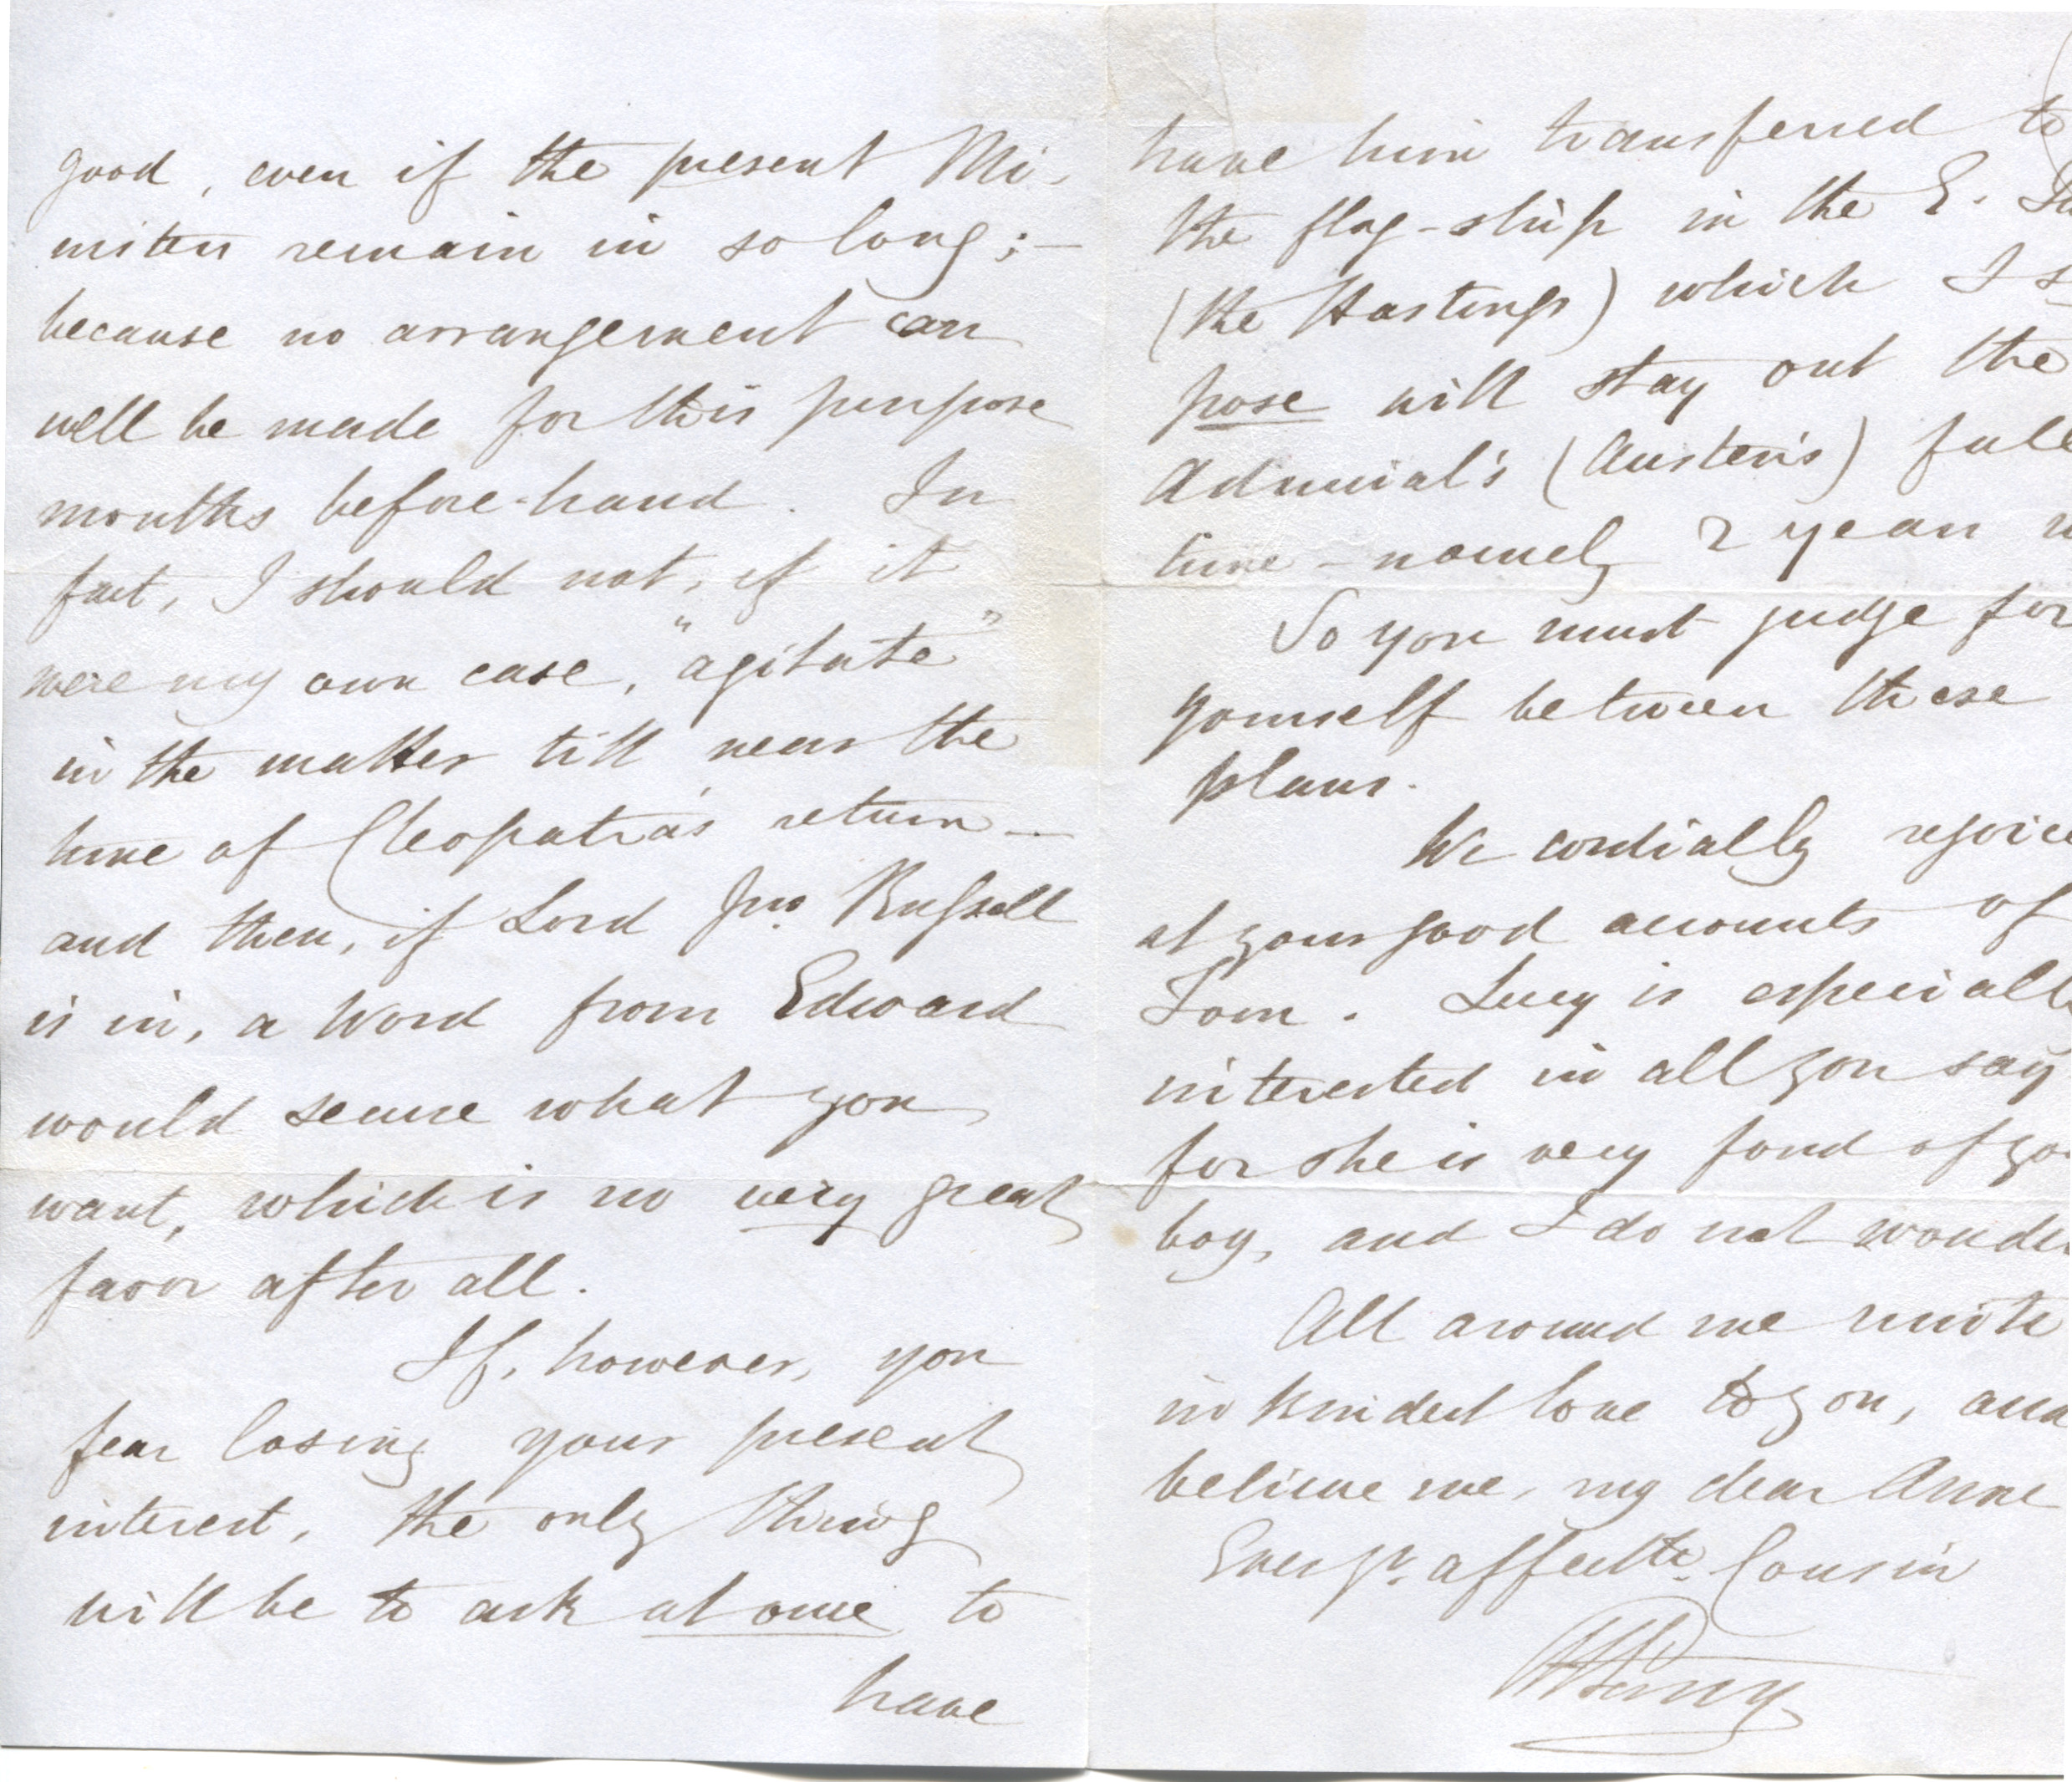 good, even if the present Mi-
nisters remain in so long;—
because no arrangement can
well be made for this purpose
months before-hand. In
fact, I should not, if it
were my own case, "agitate"
in the matter till near the
time of Cleopatra's return—
and then, if Lord Jno. Russell
is in, a word from Edward
would secure what you
want, which is no very great
favor after all.
If, however, you
fear losing your present
interest, the only thing
will be to ask at once to
have
have him transferred to
the flag-ship in the E. In
(the Hastings) which I s
pose will stay out the
Admiral's (Austen's) full
time – namely 2 years
So you must judge for
yourself between these
plans.
We cordially rejoice
at your good accounts of
Tom. Lucy is especiall
interested in all you say
for she is very fond of yo
boy, and I do not wonde
All around me unite
in kindest love to you, and
believe me, my dear Anne
Ever yr. affectte. Cousin
WEParry